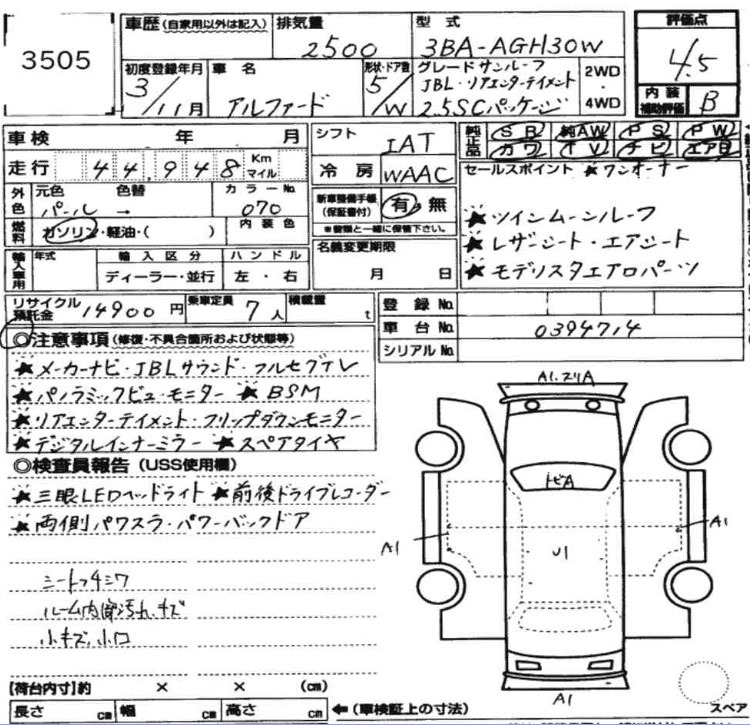 3505
車歴 (自家用以外は記入) 排気量 2500 型式 3BA-AGH30W
評価点 4.5
内装補助評価 B
初度登録年月 3/11月 車名 アルファード 形状・ドア数 5/W
グレード サンルーフ JBL・リアエンターテイメント 2.5SCパッケージ
2WD・4WD
車検 年 月 シフト IAT
純正品 SR 純AW PS PW
カワ TV ナビ エアB
走行 44,948 Km マイル 冷房 WAAC
セールスポイント ★ワンオーナー
外色 元色 パール 色替 → カラーNo. 070
新車整備手帳(保証書付) 有・無
※書類と一緒に保管下さい。
★ツインムーンルーフ
燃料 ガソリン・軽油・( ) 内装色
★レザーシート・エアシート
輸入車用 年式 輸入区分 ディーラー・並行 ハンドル 左・右
名義変更期限 月 日
★モデリスタエアロパーツ
リサイクル預託金 14900円 乗車定員 7人 積載量 t
登録No.
車台No. 0394714
シリアルNo.
◎注意事項 (修復・不具合箇所および状態等)
★メーカーナビ・JBLサウンド・フルセグTV
★パノラミックビュー・モニター ★BSM
★リアエンターテイメント・フリップダウンモニター
★デジタルインナーミラー ★スペアタイヤ
◎検査員報告 (USS使用欄)
★三眼LEDヘッドライト ★前後ドライブレコーダー
★両側パワスラ・パワーバックドア
シートフチシワ
ルーム内部汚れ、キズ
小キズ、小凹
A1.スリA
トビA
A1
U1
A1
A1
【荷台内寸】約 × × (cm)
長さ cm 幅 cm 高さ cm ←(車検証上の寸法)
スペア